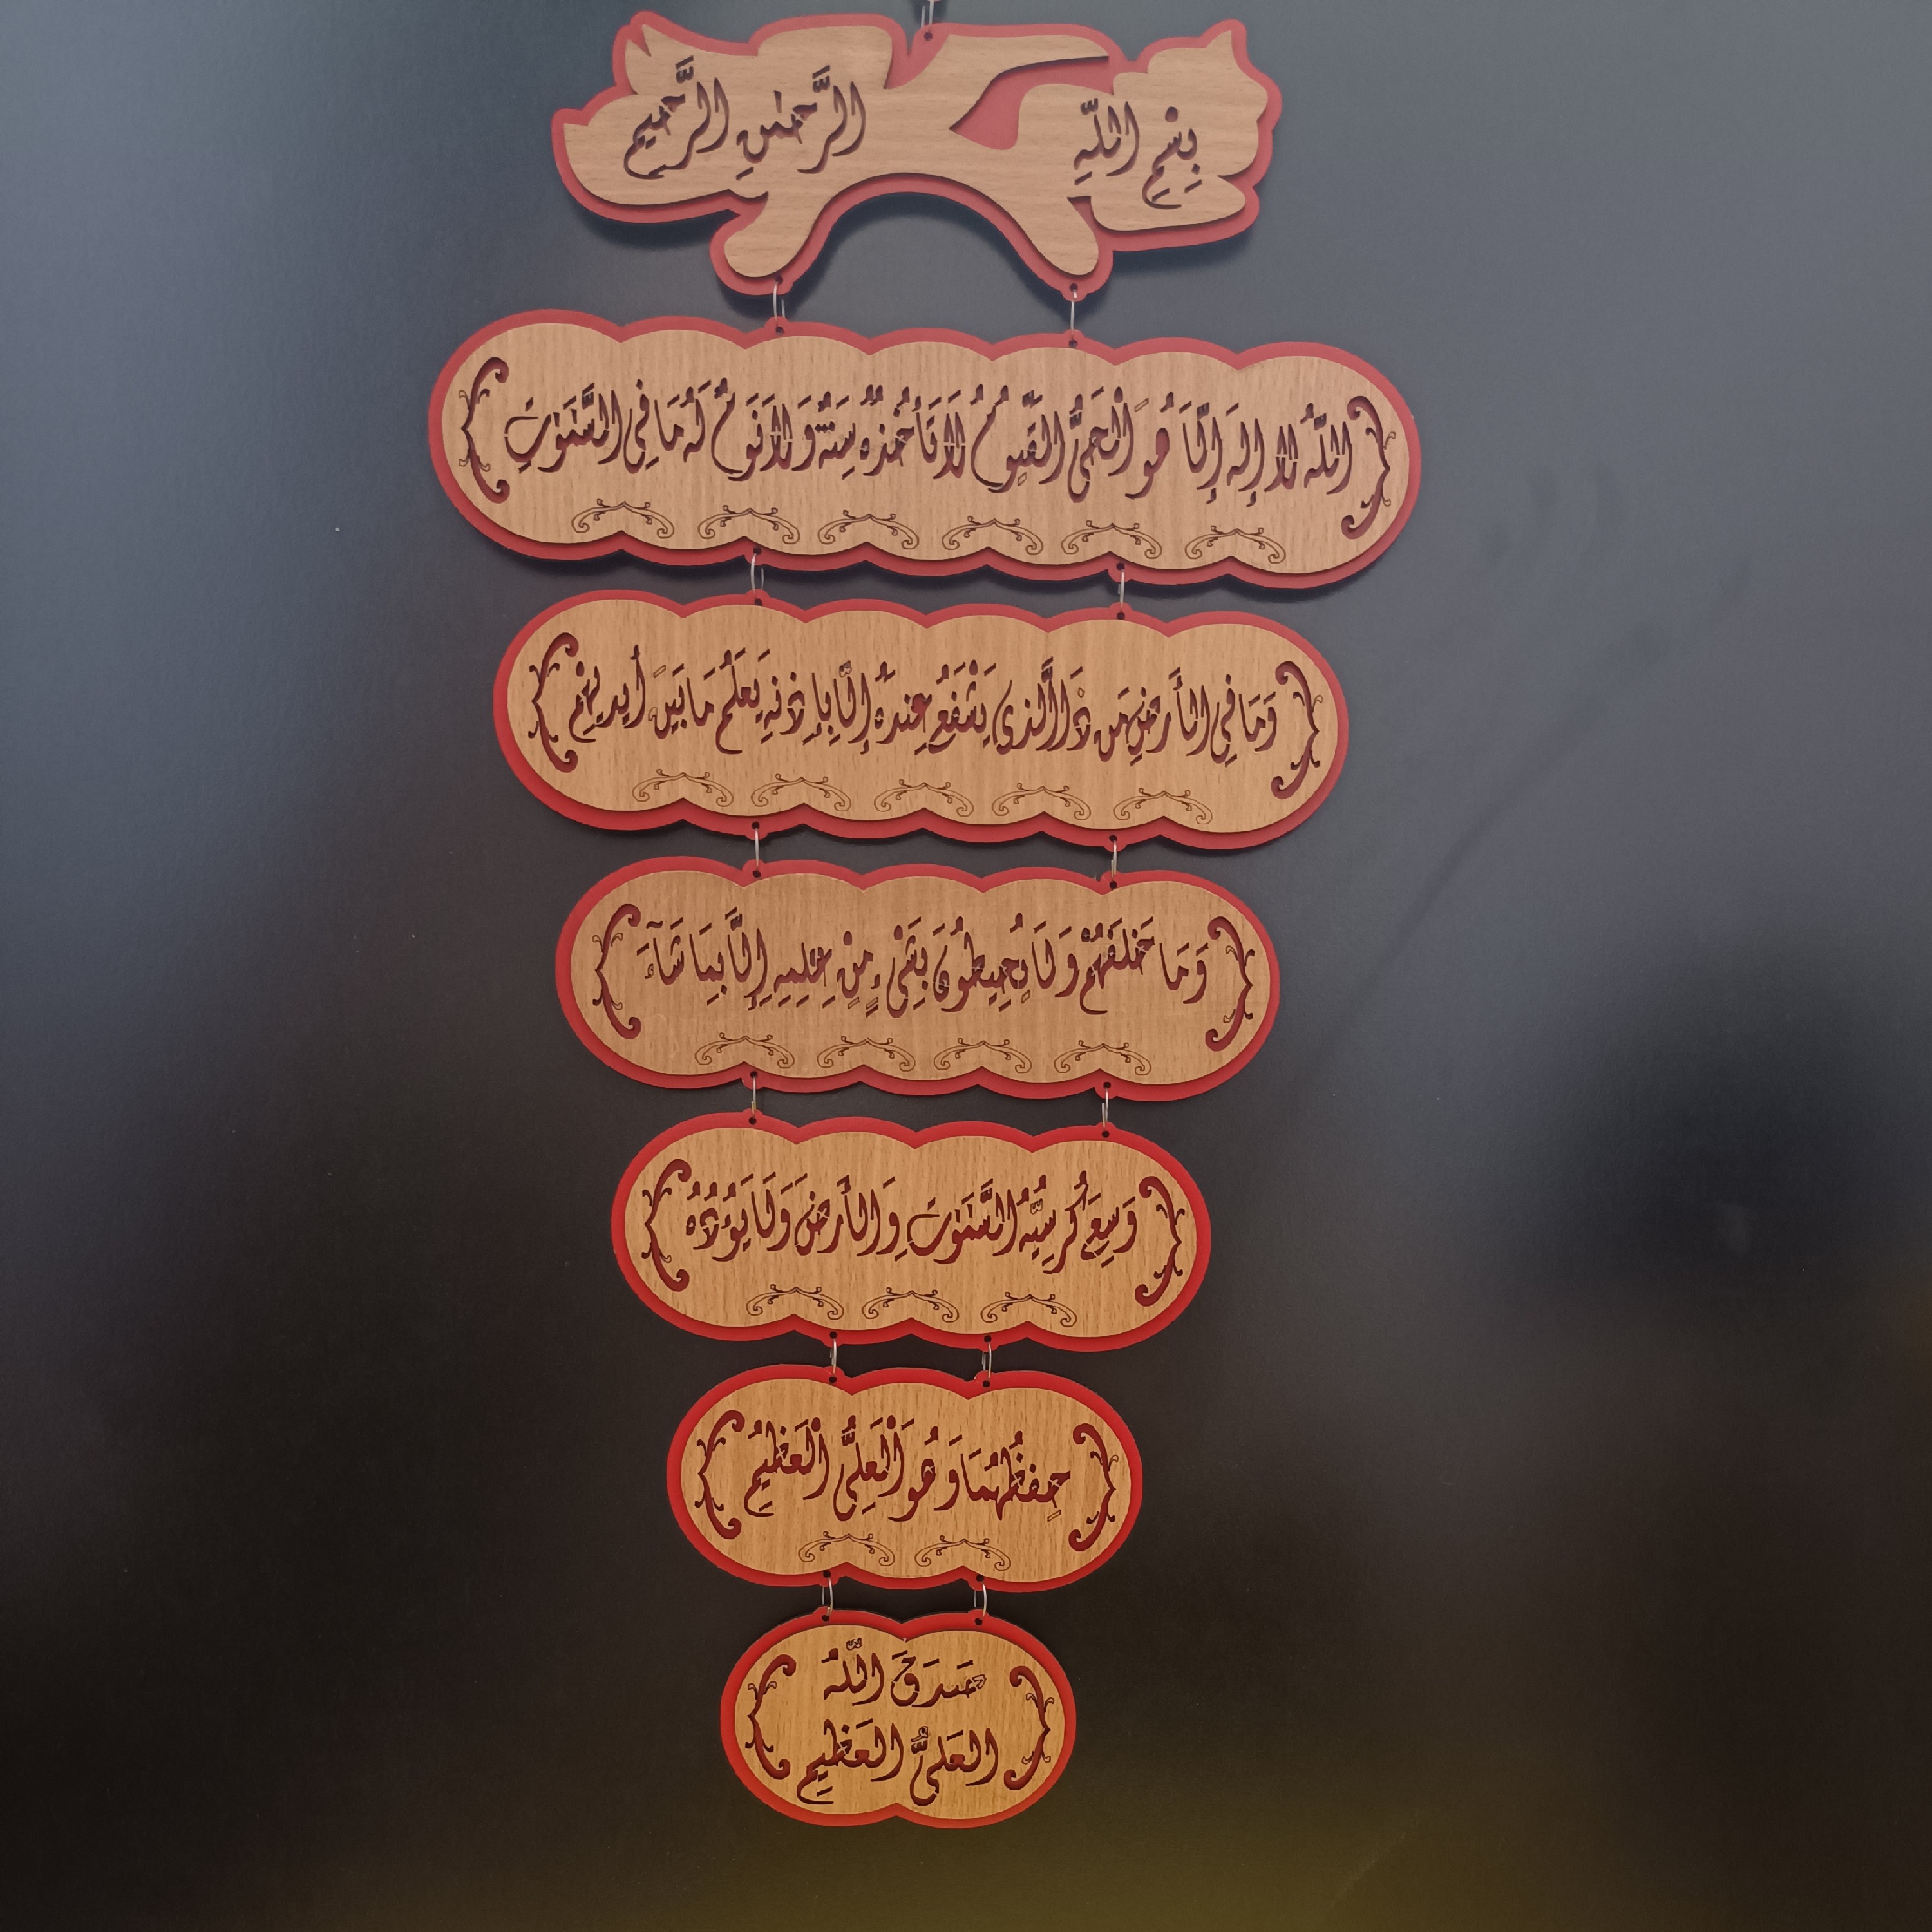 بِسْمِ اللّٰهِ الرَّحْمٰنِ الرَّحِيمِ
اللّٰهُ لَا إِلٰهَ إِلَّا هُوَ الْحَيُّ الْقَيُّومُ لَا تَأْخُذُهُ سِنَةٌ وَلَا نَوْمٌ لَهُ مَا فِي السَّمٰوٰتِ
وَمَا فِي الْأَرْضِ مَن ذَا الَّذِي يَشْفَعُ عِندَهُ إِلَّا بِإِذْنِهِ يَعْلَمُ مَا بَيْنَ أَيْدِيهِمْ
وَمَا خَلْفَهُمْ وَلَا يُحِيطُونَ بِشَيْءٍ مِنْ عِلْمِهِ إِلَّا بِمَا شَآءَ
وَسِعَ كُرْسِيُّهُ السَّمٰوٰتِ وَالْأَرْضَ وَلَا يَؤُدُهُ
حِفْظُهُمَا وَهُوَ الْعَلِيُّ الْعَظِيمُ
صَدَقَ اللّٰهُ
العَلِيُّ العَظِيمِ